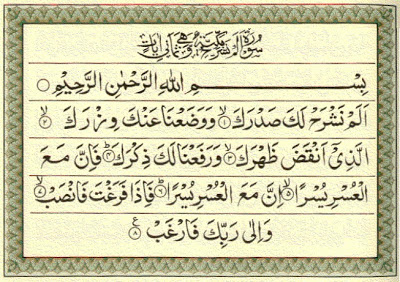 سُوْرَةُ اَلَمْ نَشْرَحْ مَكِّيَّةٌ وَّهِيَ ثَمَانِيْ اٰيَاتٍ
بِسْمِ اللهِ الرَّحْمٰنِ الرَّحِيْمِ ○
اَلَمْ نَشْرَحْ لَكَ صَدْرَكَ ۙ۱ وَوَضَعْنَا عَنْكَ وِزْرَكَ ۙ۲
الَّذِيْٓ اَنْقَضَ ظَهْرَكَ ۙ۳ وَرَفَعْنَا لَكَ ذِكْرَكَ ؕ۴ فَاِنَّ مَعَ
الْعُسْرِ يُسْرًا ۙ۵ اِنَّ مَعَ الْعُسْرِ يُسْرًا ؕ۶ فَاِذَا فَرَغْتَ فَانْصَبْ ۙ۷
وَاِلٰى رَبِّكَ فَارْغَبْ ۸ ع